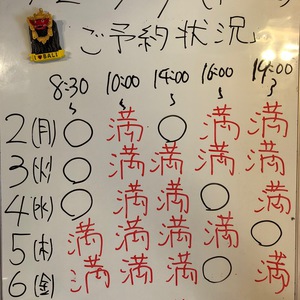 ご予約状況
8:30 10:00 14:00 16:00 19:00
2(月) ○ 満 ○ 満 満
3(火) ○ 満 満 満 満
4(水) ○ 満 満 ○ 満
5(木) 満 満 満 満 ○
6(金) 満 満 満 ○ 満
I ♥ BALI